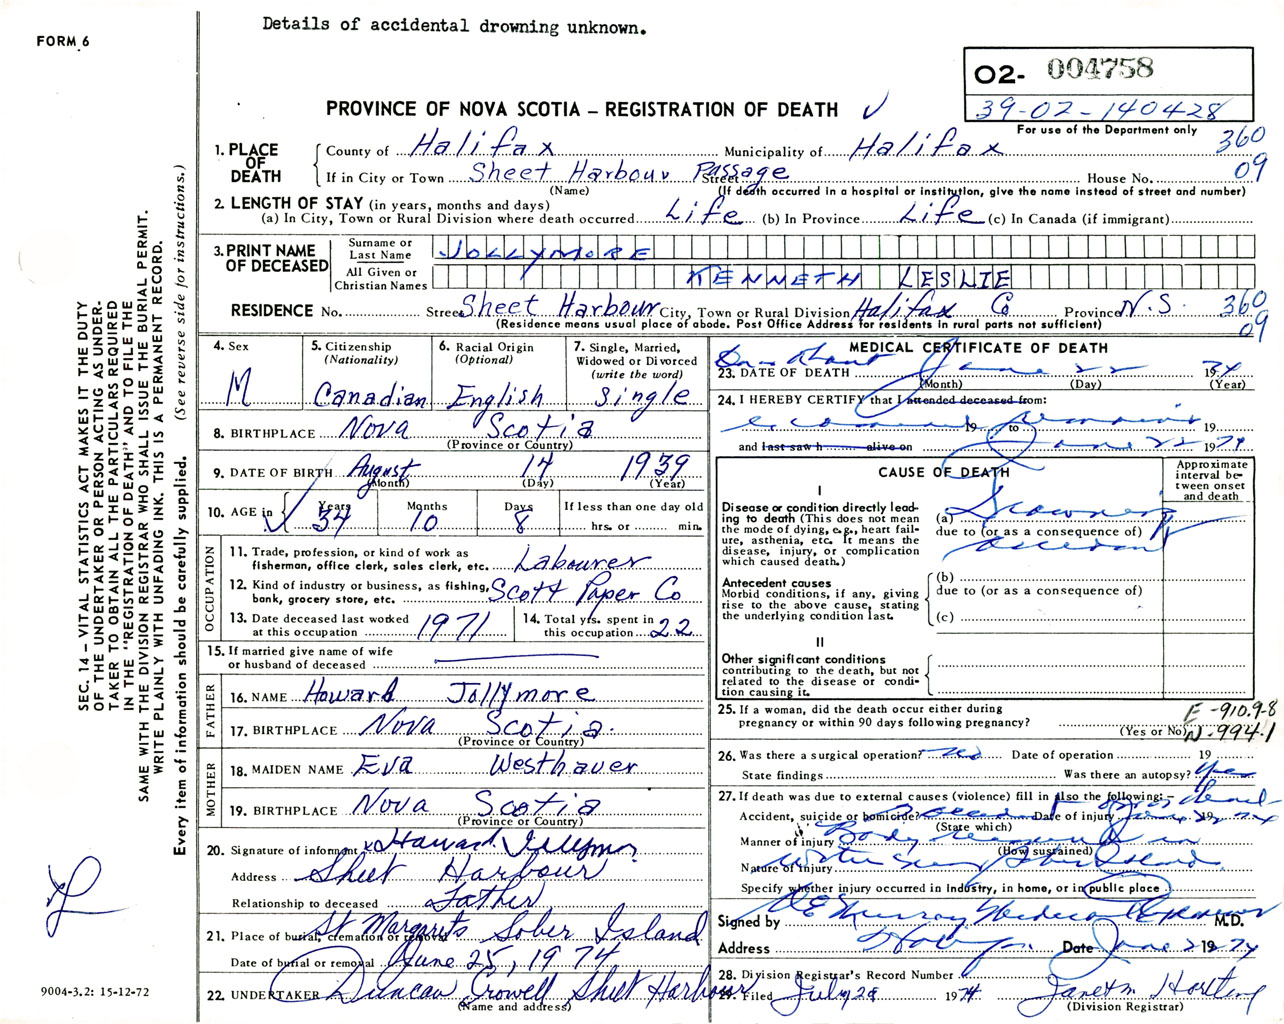 Details of accidental drowning unknown.
FORM 6
O2- 004758
39-02-140428
For use of the Department only
PROVINCE OF NOVA SCOTIA – REGISTRATION OF DEATH
360
09
1. PLACE OF DEATH
County of Halifax Municipality of Halifax
If in City or Town Sheet Harbour Passage Street House No.
(Name) (If death occurred in a hospital or institution, give the name instead of street and number)
2. LENGTH OF STAY (in years, months and days)
(a) In City, Town or Rural Division where death occurred Life (b) In Province Life (c) In Canada (if immigrant)
3. PRINT NAME OF DECEASED
Surname or Last Name JOLLYMORE
All Given or Christian Names KENNETH LESLIE
RESIDENCE No. Street Sheet Harbour City, Town or Rural Division Halifax Co Province N.S. 360
09
(Residence means usual place of abode. Post Office Address for residents in rural parts not sufficient)
4. Sex M
5. Citizenship (Nationality) Canadian
6. Racial Origin (Optional) English
7. Single, Married, Widowed or Divorced (write the word) Single
8. BIRTHPLACE Nova Scotia
(Province or Country)
9. DATE OF BIRTH August 14 1939
(Month) (Day) (Year)
10. AGE in Years 34 Months 10 Days 8 If less than one day old hrs. or min.
OCCUPATION
11. Trade, profession, or kind of work as fisherman, office clerk, sales clerk, etc. Labourer
12. Kind of industry or business, as fishing, bank, grocery store, etc. Scott Paper Co
13. Date deceased last worked at this occupation 1971
14. Total yrs. spent in this occupation 22
15. If married give name of wife or husband of deceased
FATHER
16. NAME Howard Jollymore
17. BIRTHPLACE Nova Scotia.
(Province or Country)
MOTHER
18. MAIDEN NAME Eva Westhaver
19. BIRTHPLACE Nova Scotia
(Province or Country)
20. Signature of informant x Howard Jollymore
Address Sheet Harbour
Relationship to deceased Father
21. Place of burial, cremation or removal St Margarets Sober Island
Date of burial or removal June 25, 1974
22. UNDERTAKER Duncan Crowell Sheet Harbour
(Name and address)
MEDICAL CERTIFICATE OF DEATH
On or About
23. DATE OF DEATH June 22 1974
(Month) (Day) (Year)
24. I HEREBY CERTIFY that I attended deceased from:
examined remains
19 to 19
and last saw h alive on June 22 1974
CAUSE OF DEATH
Approximate interval between onset and death
I
Disease or condition directly leading to death (This does not mean the mode of dying, e.g., heart failure, asthenia, etc. It means the disease, injury, or complication which caused death.)
(a) Drowning
due to (or as a consequence of)
accident
Antecedent causes
Morbid conditions, if any, giving rise to the above cause, stating the underlying condition last.
(b)
due to (or as a consequence of)
(c)
II
Other significant conditions contributing to the death, but not related to the disease or condition causing it.
25. If a woman, did the death occur either during pregnancy or within 90 days following pregnancy?
(Yes or No)
E-910.9-8
N-994.1
26. Was there a surgical operation? no Date of operation 19
State findings Was there an autopsy? yes
27. If death was due to external causes (violence) fill in also the following:—
Accident, suicide or homicide? accident Date of injury June 19 74
(State which)
Manner of injury Body in
(How sustained)
Nature of injury water Sober Island
Specify whether injury occurred in Industry, in home, or in public place
Signed by Murray Medical Examiner M.D.
Address Date June 22 1974
28. Division Registrar's Record Number
29. Filed July 28 1974 Janet M
(Division Registrar)
SEC. 14 – VITAL STATISTICS ACT MAKES IT THE DUTY
OF THE UNDERTAKER OR PERSON ACTING AS UNDERTAKER TO OBTAIN ALL THE PARTICULARS REQUIRED
IN THE "REGISTRATION OF DEATH" AND TO FILE THE
SAME WITH THE DIVISION REGISTRAR WHO SHALL ISSUE THE BURIAL PERMIT.
WRITE PLAINLY WITH UNFADING INK. THIS IS A PERMANENT RECORD.
Every item of information should be carefully supplied. (See reverse side for instructions.)
9004-3.2: 15-12-72